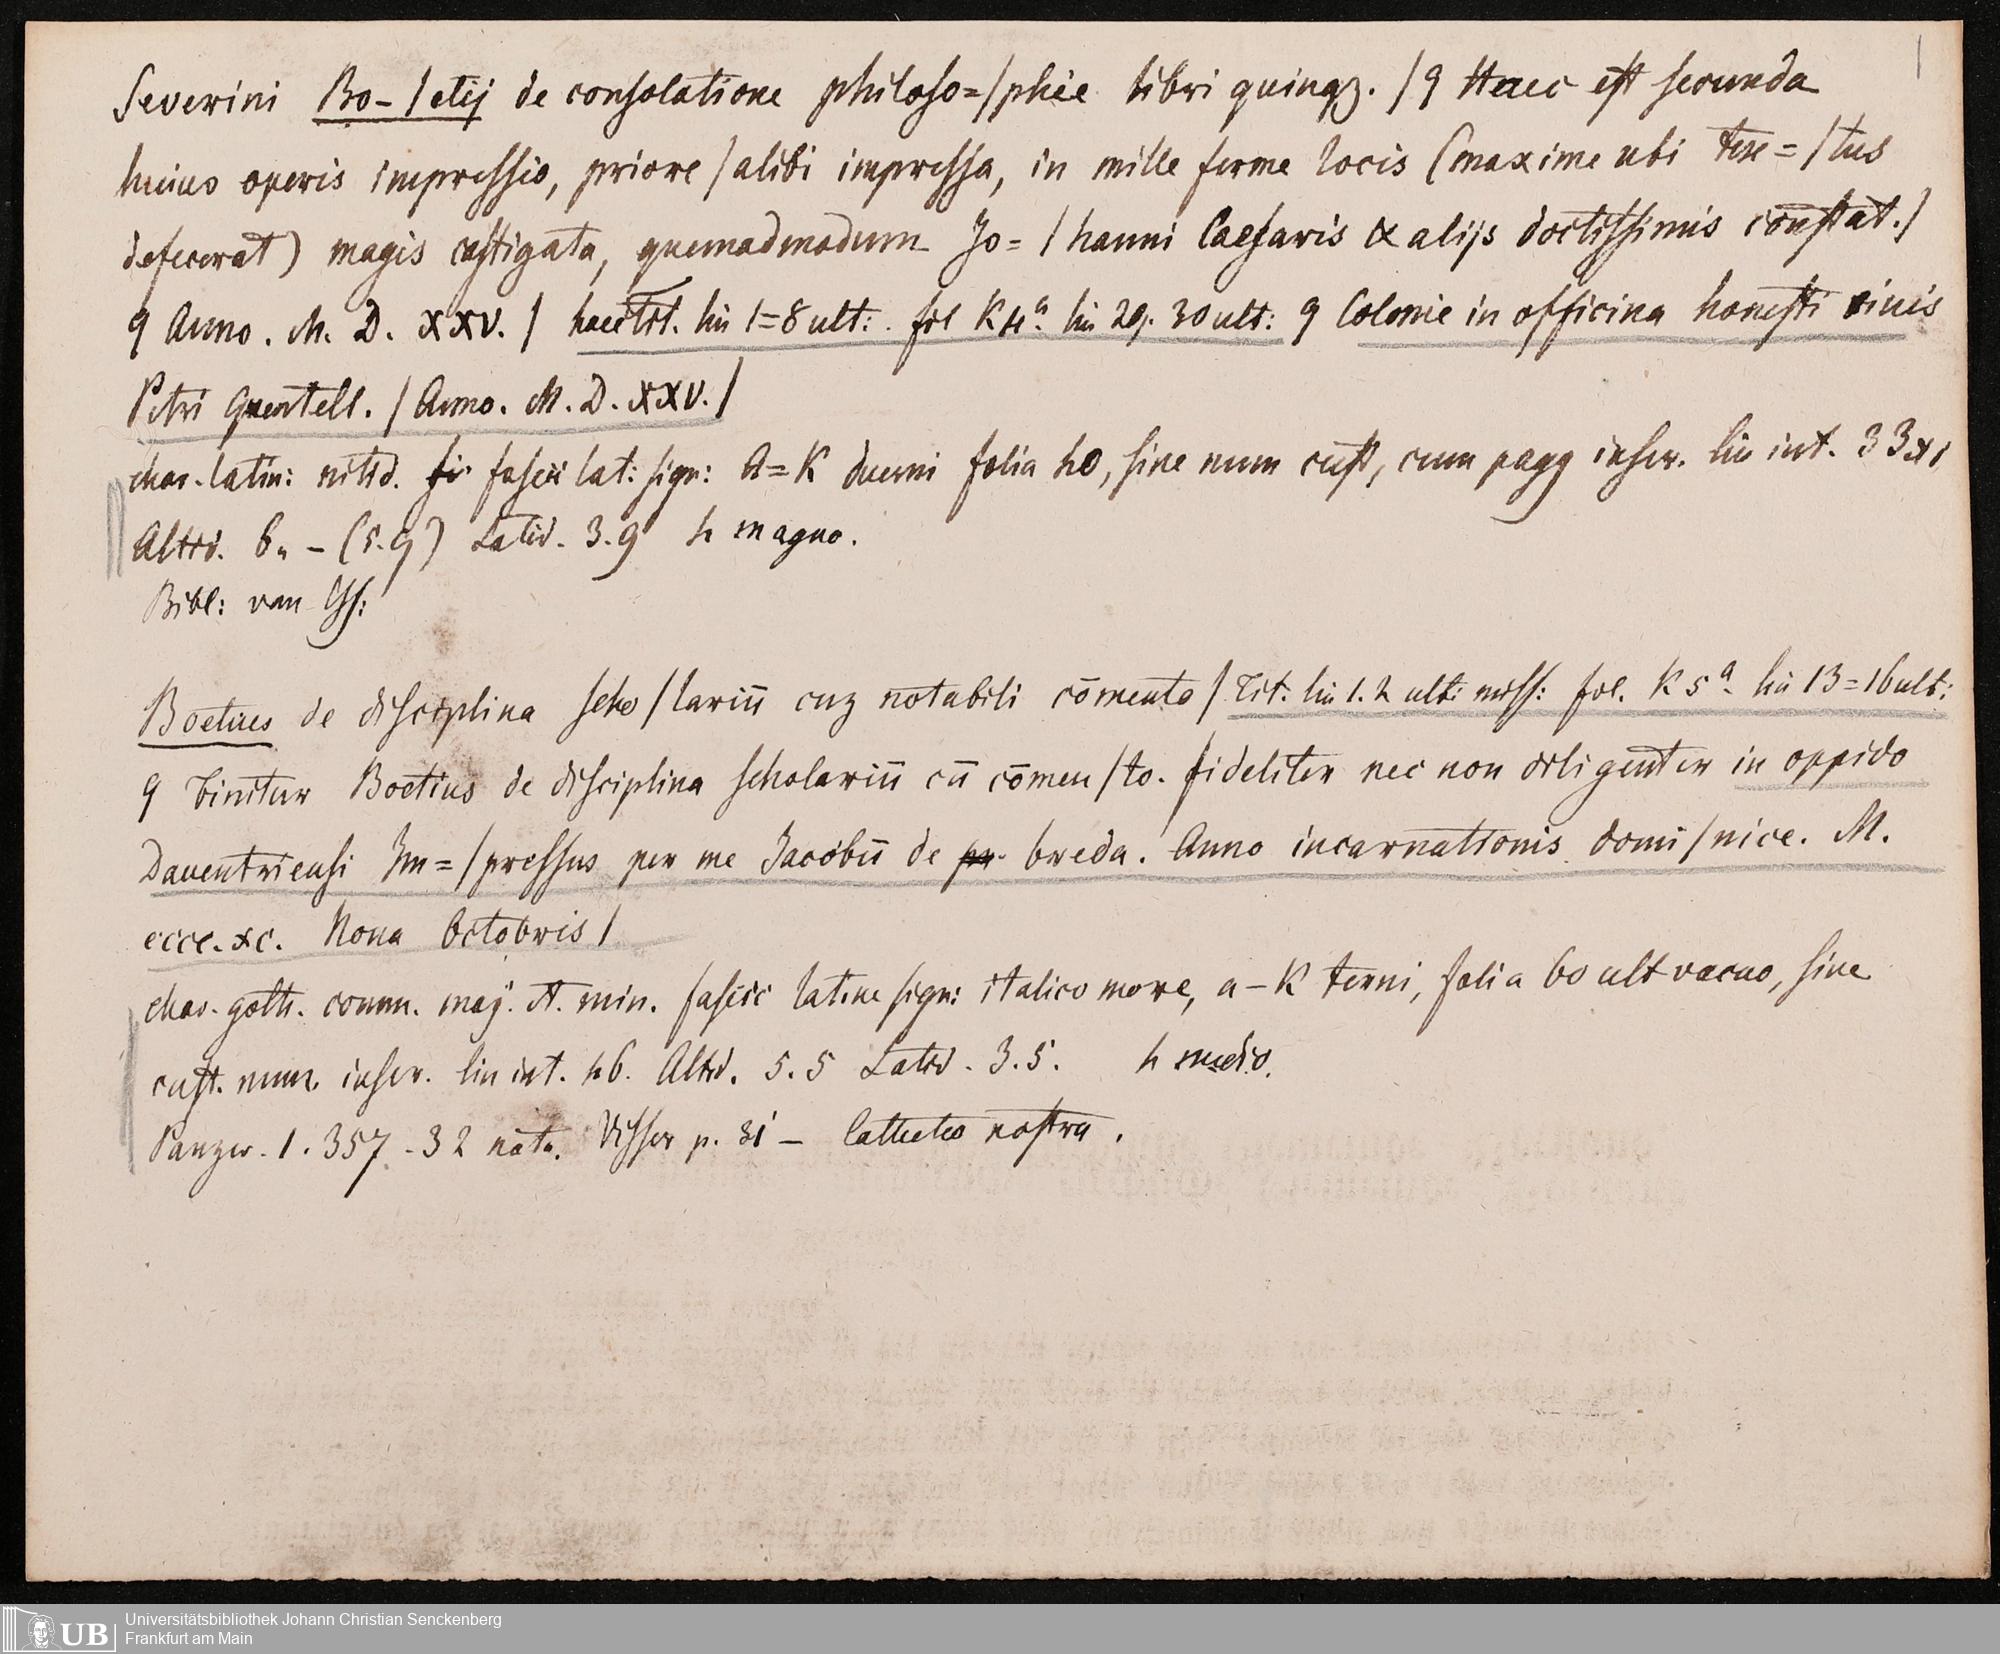 Severini Bo-/etij de consolatione philoso=/phie libri quinqz. /9 Haec est secunda
huius operis impressio, priore /alibi impressa, in mille ferme locis (maxime ubi tex=/tus
defecerat) magis castigata, quemadmodum Jo=/hanni Caesaris & alijs doctissimis constat./
9 Anno. M. D. XXV. / haec tit. lin 1=8 ult: fol K4a. lin 29. 30 ult: 9 Colonie in officina honesti civis
Petri Quentell. / Anno. M. D. XXV./
char. latin: nitid. fascic lat: sign: A=K duerni folia 40, sine num cust, cum pagg inscr. lin int. 33
Altid. 6" - (5.9) Latid. 3.9 4 magno.
Bibl: van Ess:
Boetius de disciplina scho/lariū cuz notabili cōmento/ Tit. lin 1.2 ult: miss: fol. K5a. lin 13=16 ult:
9 Finitur Boetius de disciplina scholariū cū cōmen/to. fideliter nec non diligenter in oppido
Dauentriensi Im=/pressus per me Jacobū de breda. Anno incarnationis domi/nice. M.
cccc. xc. Nona Octobris/
char. goth. comm. maj. et. min. fascic latine sign: italico more, a-K terni, folia 60 ult vacuo, sine
cust. num. inscr. lin int. 46. Altid. 5.5 Latid. 3.5. 4 medio.
Panzer. 1. 357. 32 nota. Visser p. 31 - nostra.
1
UB
Universitätsbibliothek Johann Christian Senckenberg
Frankfurt am Main